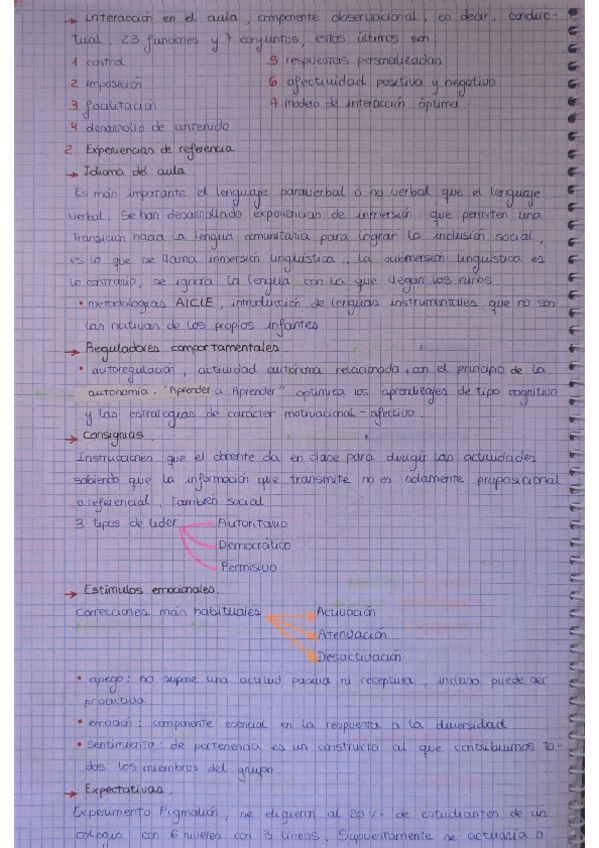 → interacción en el aula, componente observacional, es decir, conduc-
tual, 23 funciones y 7 conjuntos, estos últimos son:
1 control
5 respuestas personalizadas
2 imposición
6 afectividad positiva y negativo
3 facilitación
7 modelo de interacción óptima.
4 desarrollo de contenido
2. Experiencias de referencia
→ Idioma del aula
Es más importante el lenguaje paraverbal o no verbal que el lenguaje
verbal. Se han desarrollado experiencias de inmersión que permiten una
transición hacia la lengua comunitaria para lograr la inclusión social,
es lo que se llama inmersión lingüística, la submersión lingüística es
lo contrario, se ignora la lengua con la que llegan los niños.
• metodologías AICLE, introducción de lenguas instrumentales que no son
las nativas de los propios infantes
→ Reguladores comportamentales
• autorregulación, actividad autónoma relacionada con el principio de la
autonomía. "Aprender a Aprender" optimiza los aprendizajes de tipo cognitivo
y las estrategias de carácter motivacional-afectivo.
→ Consignas.
Instrucciones que el docente da en clase para dirigir las actividades
sabiendo que la información que transmite no es solamente proposicional
o referencial. También social
3 tipos de líder
Autoritario
Democrático
Permisivo
→ Estímulos emocionales.
Correcciones más habituales
Activación
Atenuación
Desactivación
• apego: no supone una actitud pasiva ni receptiva, incluso puede ser
proactiva
• emoción: componente esencial en la respuesta a la diversidad
• sentimiento: de pertenencia es un constructo al que contribuimos to-
dos los miembros del grupo
→ Expectativas.
Experimento Pigmalión, se eligieron al 20% de estudiantes de un
colegio con 6 niveles con 3 líneas. Supuestamente se actuaría a